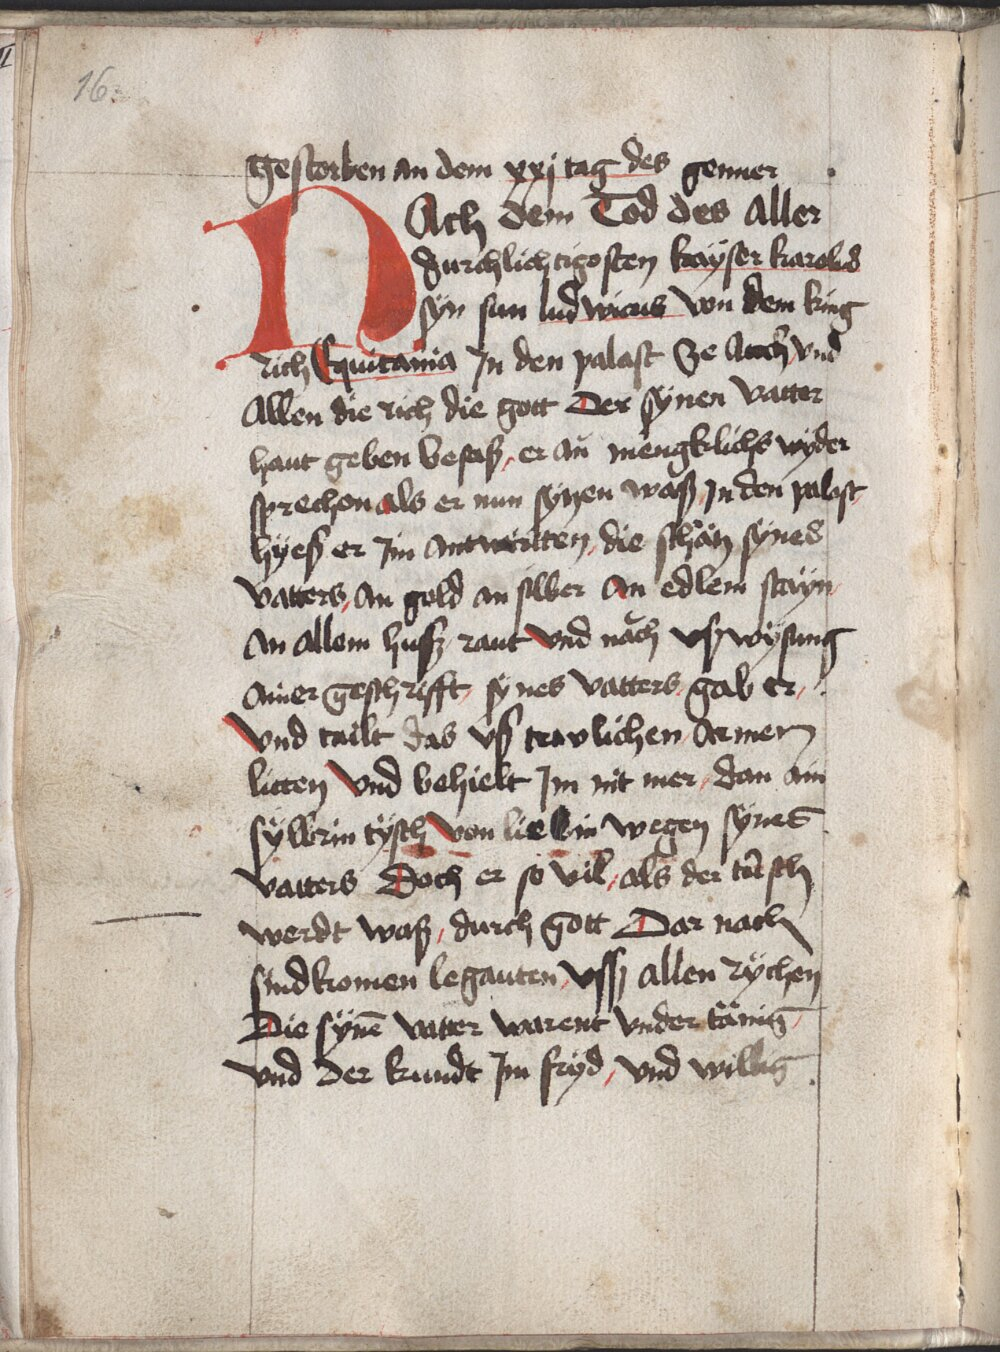 16.
gestorben an dem xxj tag des genner
NAch dem Tod des aller
durchlichtigosten kayser karolus
syn sun ludwicus von dem king
rich Equitania In den palast ze Auch vnd
Allen die rich die gott Der synen vatter
haut geben besasz er an mengklichs wyder
sprechen als er nun synen wasz In den palast
hyesz er Im antwirtten die schätz synes
vatters an gold an silber an edlem stayn
An allem husz raut vnd nach vszwysung
ainer geschrifft synes vatters gab er
vnd tailt das vsz armen
litten vnd behielt Im nit mer dan ain
sylbrin tysch von liebin wegen synes
vatters Doch er so vil als der tisch
werdt wasz durch gott Dar nach
sind komen legauten vssz allen rychen
Die synem vatter warent vnder tänig
vnd Der kundt Im fryd vnd willig